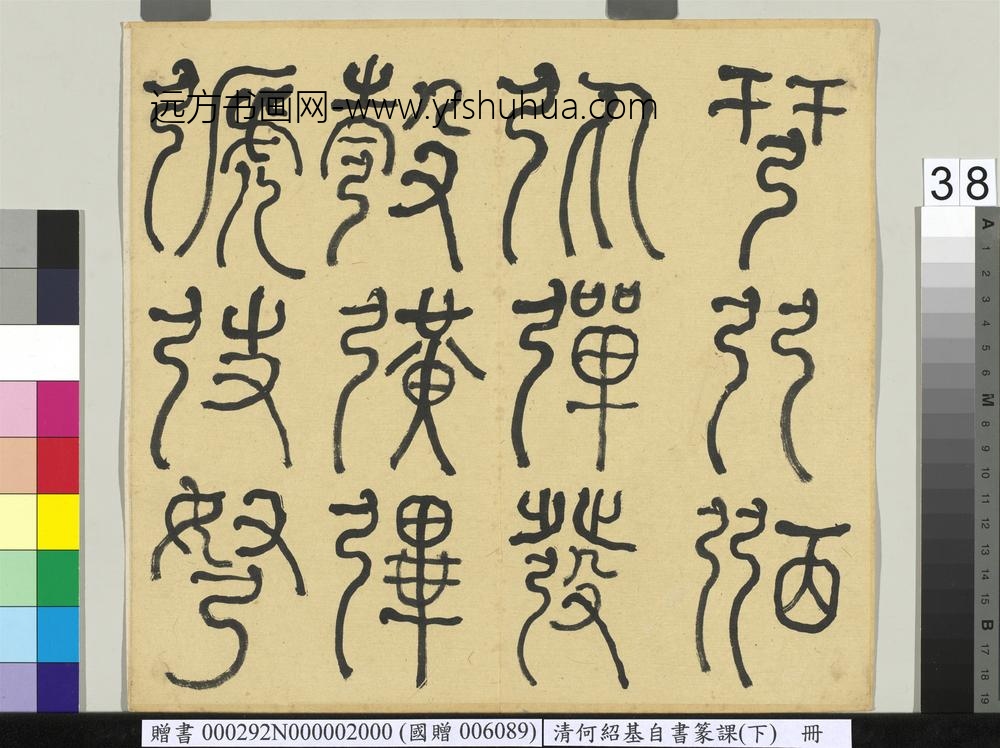 𢏗弜弼
彈發
彀彍彃
㢮弢弩
远方书画网-www.yfshuhua.com
38
A 1 2 3 4 5 6 M 8 9 10 11 12 13 14 15 B 17 18 19
贈書 000292N000002000 (國贈 006089) 清何紹基自書篆課(下) 冊